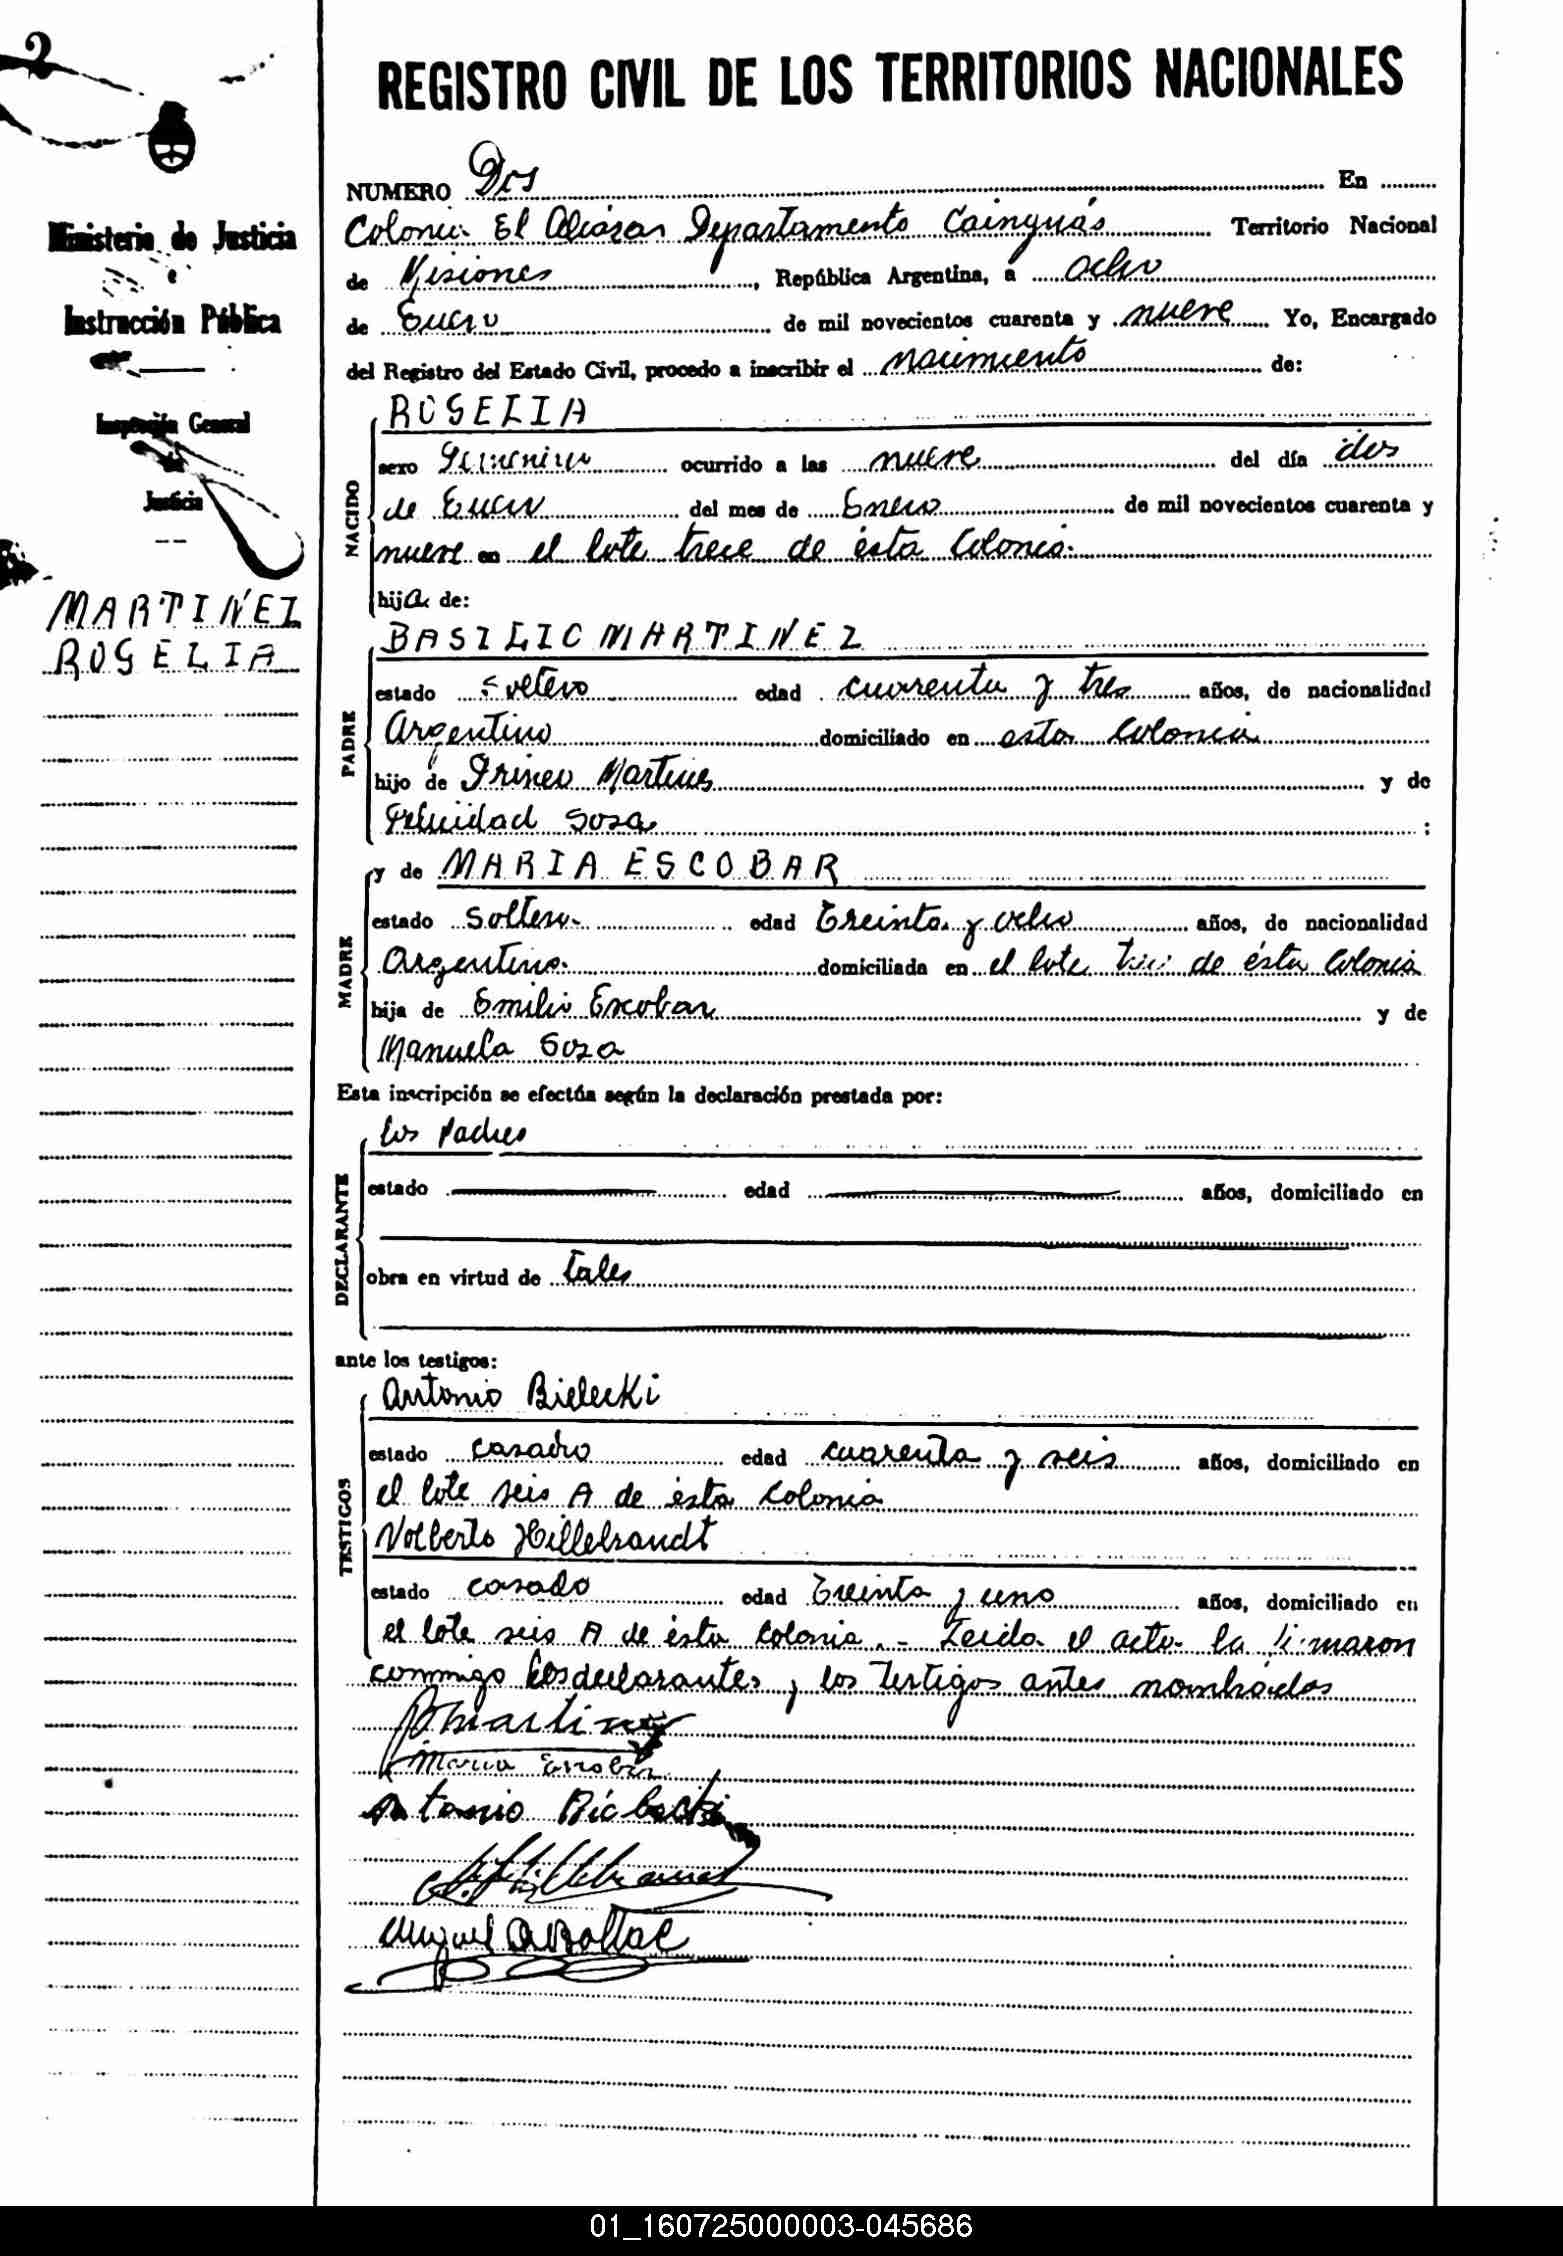 2
Ministerio de Justicia
e
Instrucción Pública
Inspección General
de
Justicia
MARTINEZ
ROGELIA
REGISTRO CIVIL DE LOS TERRITORIOS NACIONALES
NUMERO Dos En
Colonia El Alcázar Departamento Cainguás Territorio Nacional
de Misiones, República Argentina, a ocho
de Enero de mil novecientos cuarenta y nueve Yo, Encargado
del Registro del Estado Civil, procedo a inscribir el nacimiento de:
NACIDO
ROGELIA
sexo Femenino ocurrido a las nueve del día dos
de Enero del mes de Enero de mil novecientos cuarenta y
nueve en el lote trece de ésta Colonia.
hija de:
PADRE
BASILIO MARTINEZ
estado soltero edad cuarenta y tres años, de nacionalidad
Argentino domiciliado en esta Colonia
hijo de Irineo Martines y de
Felicidad Sosa :
MADRE
y de MARIA ESCOBAR
estado soltera edad treinta y ocho años, de nacionalidad
Argentina domiciliada en el lote de ésta Colonia
hija de Emilio Escobar y de
Manuela Sosa
Esta inscripción se efectúa según la declaración prestada por:
DECLARANTE
los Padres
estado edad años, domiciliado en
obra en virtud de tales
ante los testigos:
TESTIGOS
Antonio Bielecki
estado casado edad cuarenta y seis años, domiciliado en
el lote seis A de ésta Colonia
Volberto Hillebrandt
estado casado edad treinta y uno años, domiciliado en
el lote seis A de ésta Colonia. - Leida el acta la firmaron
conmigo los declarantes y los testigos antes nombrados
BMartinez
Maria Escobar
Antonio Bielecki
Hillebrand
Miguel
01_160725000003-045686